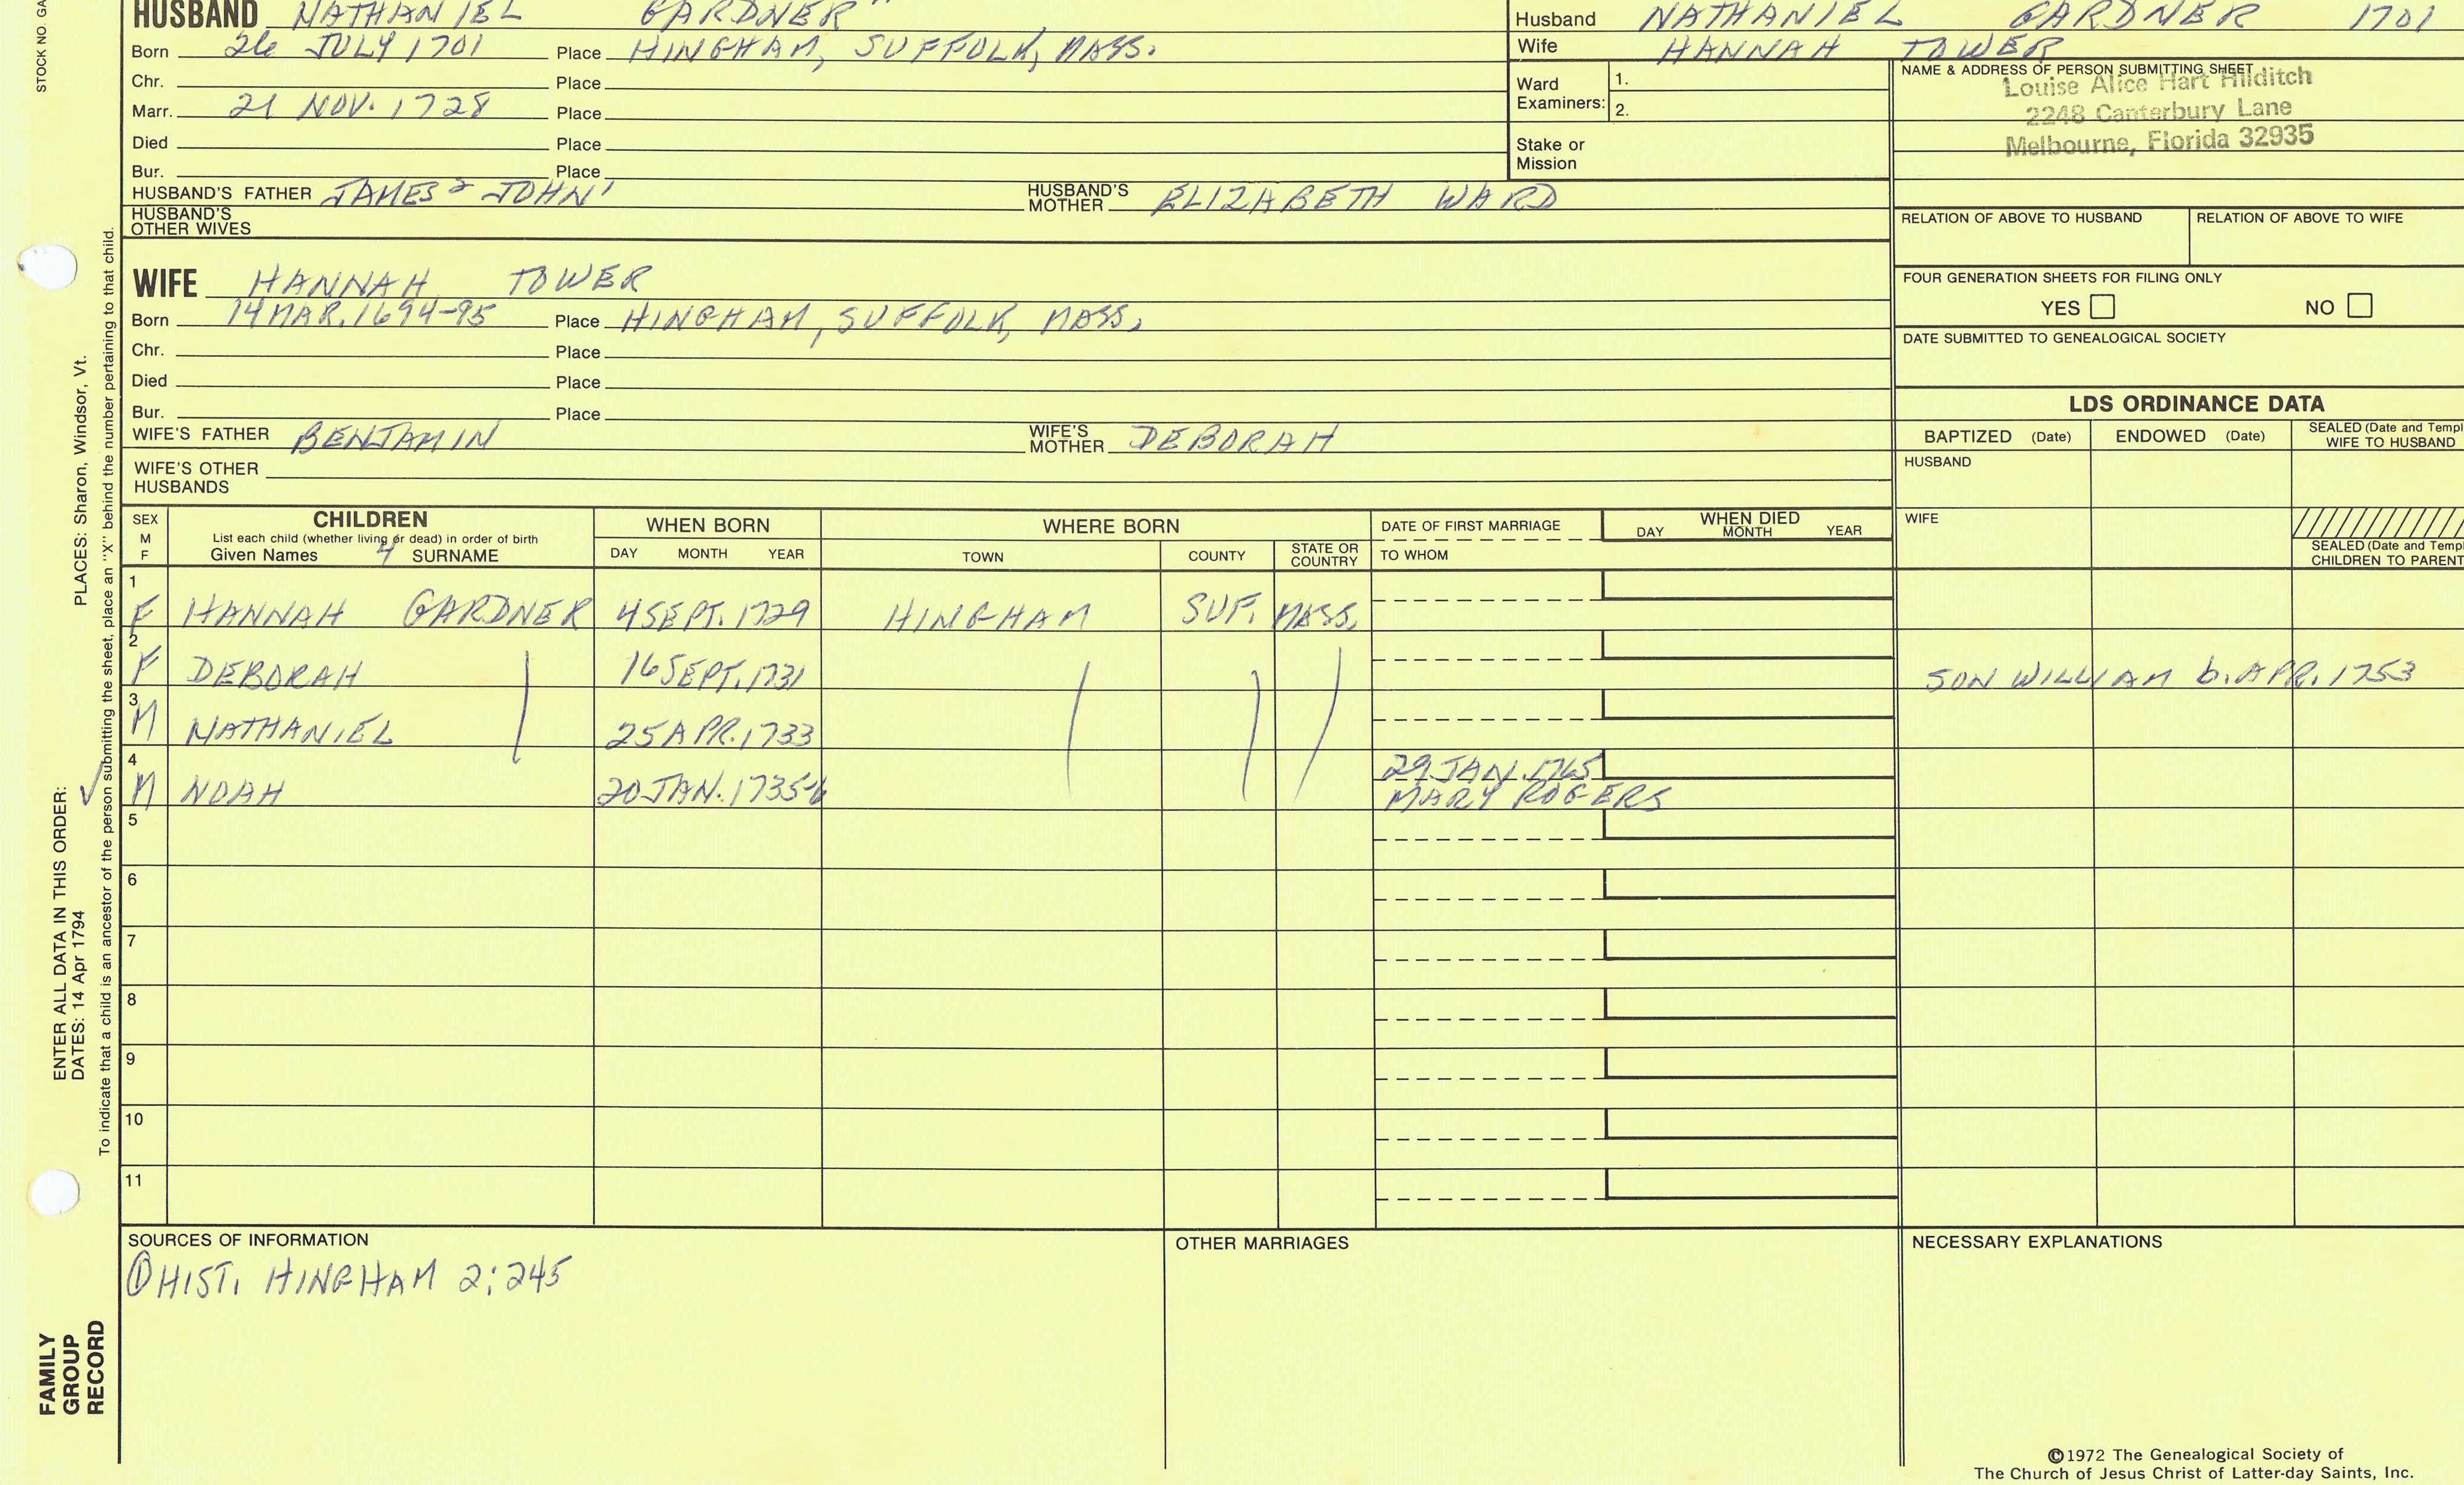 STOCK NO. GA
HUSBAND NATHANIEL GARDNER
Born 26 JULY 1701 Place HINGHAM, SUFFOLK, MASS.
Chr. Place
Marr. 21 NOV. 1728 Place
Died Place
Bur. Place
HUSBAND'S FATHER JAMES² JOHN¹ HUSBAND'S MOTHER ELIZABETH WARD
HUSBAND'S OTHER WIVES
Husband NATHANIEL GARDNER 1701
Wife HANNAH TOWER
Ward Examiners: 1.
2.
Stake or Mission
NAME & ADDRESS OF PERSON SUBMITTING SHEET
Louise Alice Hart Hilditch
2248 Canterbury Lane
Melbourne, Florida 32935
RELATION OF ABOVE TO HUSBAND RELATION OF ABOVE TO WIFE
FOUR GENERATION SHEETS FOR FILING ONLY
YES NO
DATE SUBMITTED TO GENEALOGICAL SOCIETY
WIFE HANNAH TOWER
Born 14 MAR. 1694-95 Place HINGHAM, SUFFOLK, MASS.
Chr. Place
Died Place
Bur. Place
WIFE'S FATHER BENJAMIN WIFE'S MOTHER DEBORAH
WIFE'S OTHER HUSBANDS
LDS ORDINANCE DATA
BAPTIZED (Date) ENDOWED (Date) SEALED (Date and Templ
WIFE TO HUSBAND
HUSBAND
WIFE
SEALED (Date and Templ
CHILDREN TO PARENT
SEX M F
CHILDREN
List each child (whether living or dead) in order of birth
Given Names 4 SURNAME
WHEN BORN
DAY MONTH YEAR
WHERE BORN
TOWN COUNTY STATE OR COUNTRY
DATE OF FIRST MARRIAGE
TO WHOM
WHEN DIED
DAY MONTH YEAR
1 F HANNAH GARDNER 4 SEPT. 1729 HINGHAM SUF. MASS.
2 F DEBORAH 16 SEPT. 1731 SON WILLIAM b. APR. 1753
3 M NATHANIEL 25 APR. 1733
4 M NOAH 20 JAN. 1735-6 29 JAN. 1765
MARY ROGERS
5
6
7
8
9
10
11
SOURCES OF INFORMATION
① HIST. HINGHAM 2:245
OTHER MARRIAGES
NECESSARY EXPLANATIONS
©1972 The Genealogical Society of
The Church of Jesus Christ of Latter-day Saints, Inc.
PLACES: Sharon, Windsor, Vt.
ENTER ALL DATA IN THIS ORDER:
DATES: 14 Apr 1794
To indicate that a child is an ancestor of the person submitting the sheet, place an "X" behind the number pertaining to that child.
FAMILY
GROUP
RECORD